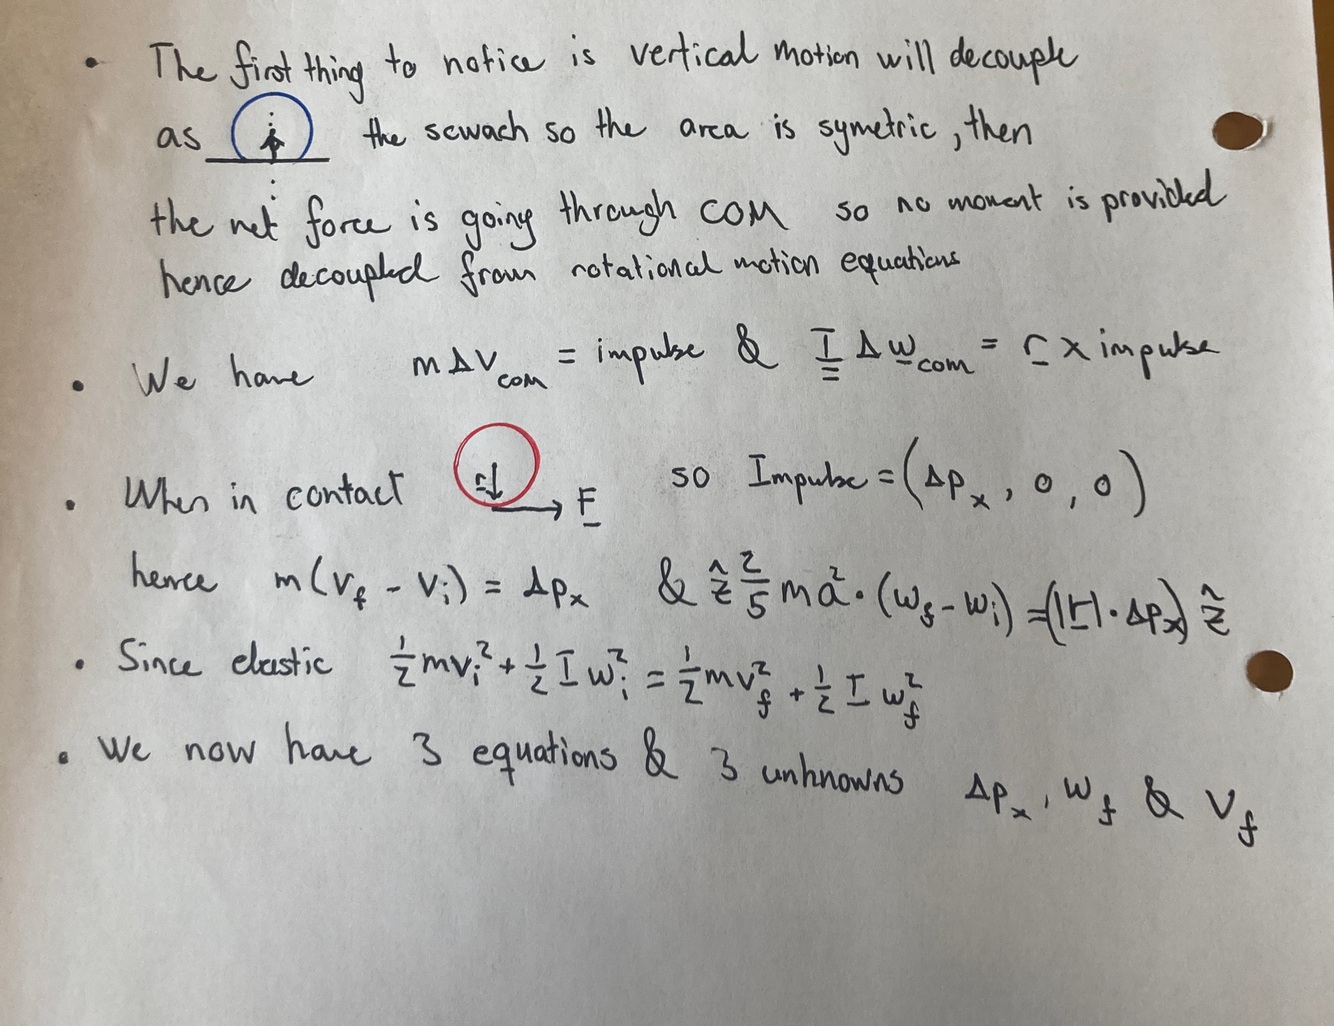 • The first thing to notice is vertical motion will decouple
as the scwach so the area is symetric, then
the net force is going through COM so no moment is provided
hence decoupled from rotational motion equations
• We have mΔV_COM = impulse & I Δω_COM = r × impulse
• When in contact r F so Impulse = (Δp_x, 0, 0)
hence m(v_f - v_i) = Δp_x & ẑ 2/5 ma² · (ω_f - ω_i) = (|r| · Δp_x) ẑ
• Since elastic 1/2 mv_i² + 1/2 I ω_i² = 1/2 mv_f² + 1/2 I ω_f²
• We now have 3 equations & 3 unknowns Δp_x, ω_f & V_f